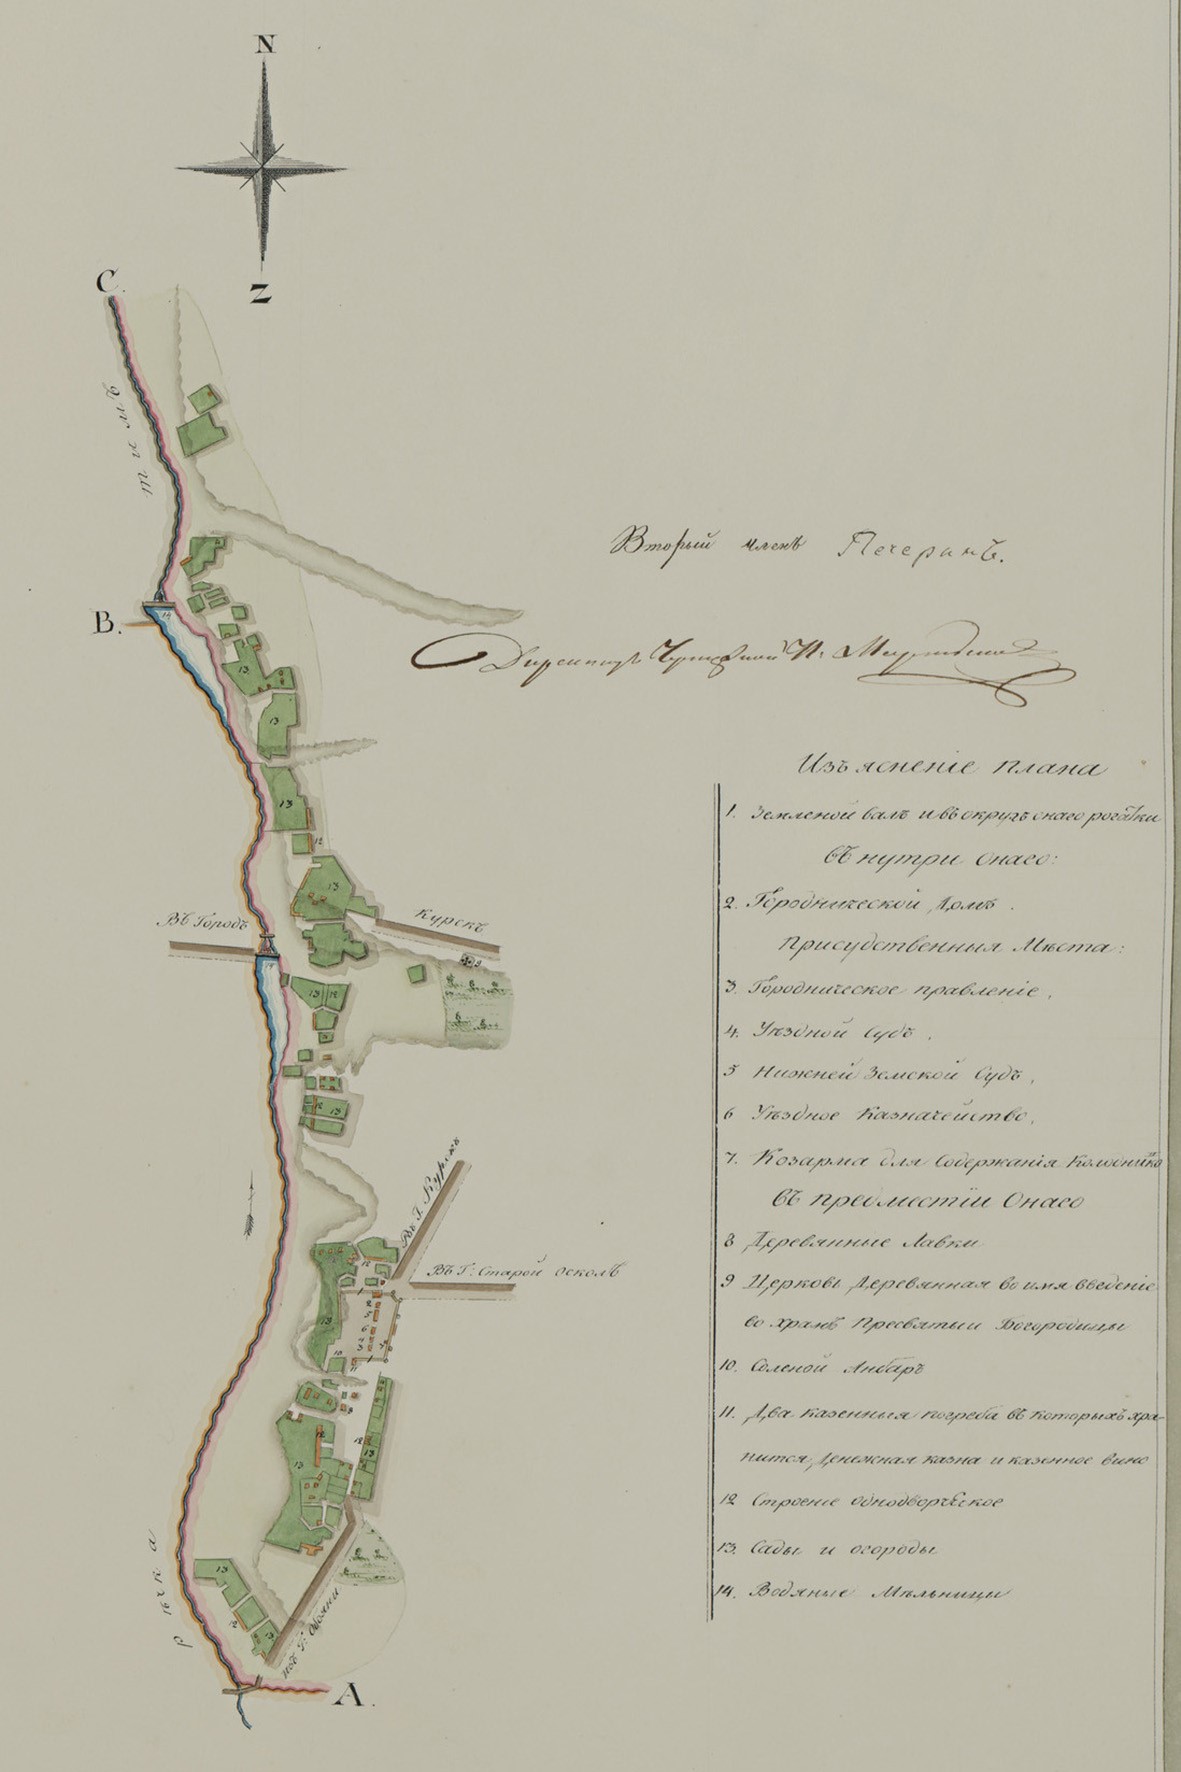 N
Z
C.
тимъ
B.
14
13
13
13
12
13
Въ Городъ
Курскъ
14
9
13
12
12
13
Въ Г. Курскъ
Въ Г: Старой осколъ
12
13
10
11
9
12
12
13
13
13
рѣка
изъ Г: Обояни
A.
Вторый членъ Печеринъ.
Директоръ
Изъясненіе плана
1. Земленой валъ и въ округъ онаго рогатки
въ нутри онаго:
2. Городнической Домъ.
присудственныя Мѣста:
3. Городническое правленіе,
4. Уѣздной Судъ,
5 Нижней Земской Судъ,
6 Уѣздное Казначейство,
7. Козарма для Содержанія Колодниковъ
въ предмѣстіи Онаго
8 Деревянные Лавки
9 Церковь Деревянная во имя введеніе
во храмъ Пресвятыи Богородицы
10. Соленой Анбаръ
11. Два казенныя погреба въ которыхъ хра-
нится Денежная казна и казенное вино
12 Строеніе однодворческое
13. Сады и огороды
14. Водяные Мѣльницы